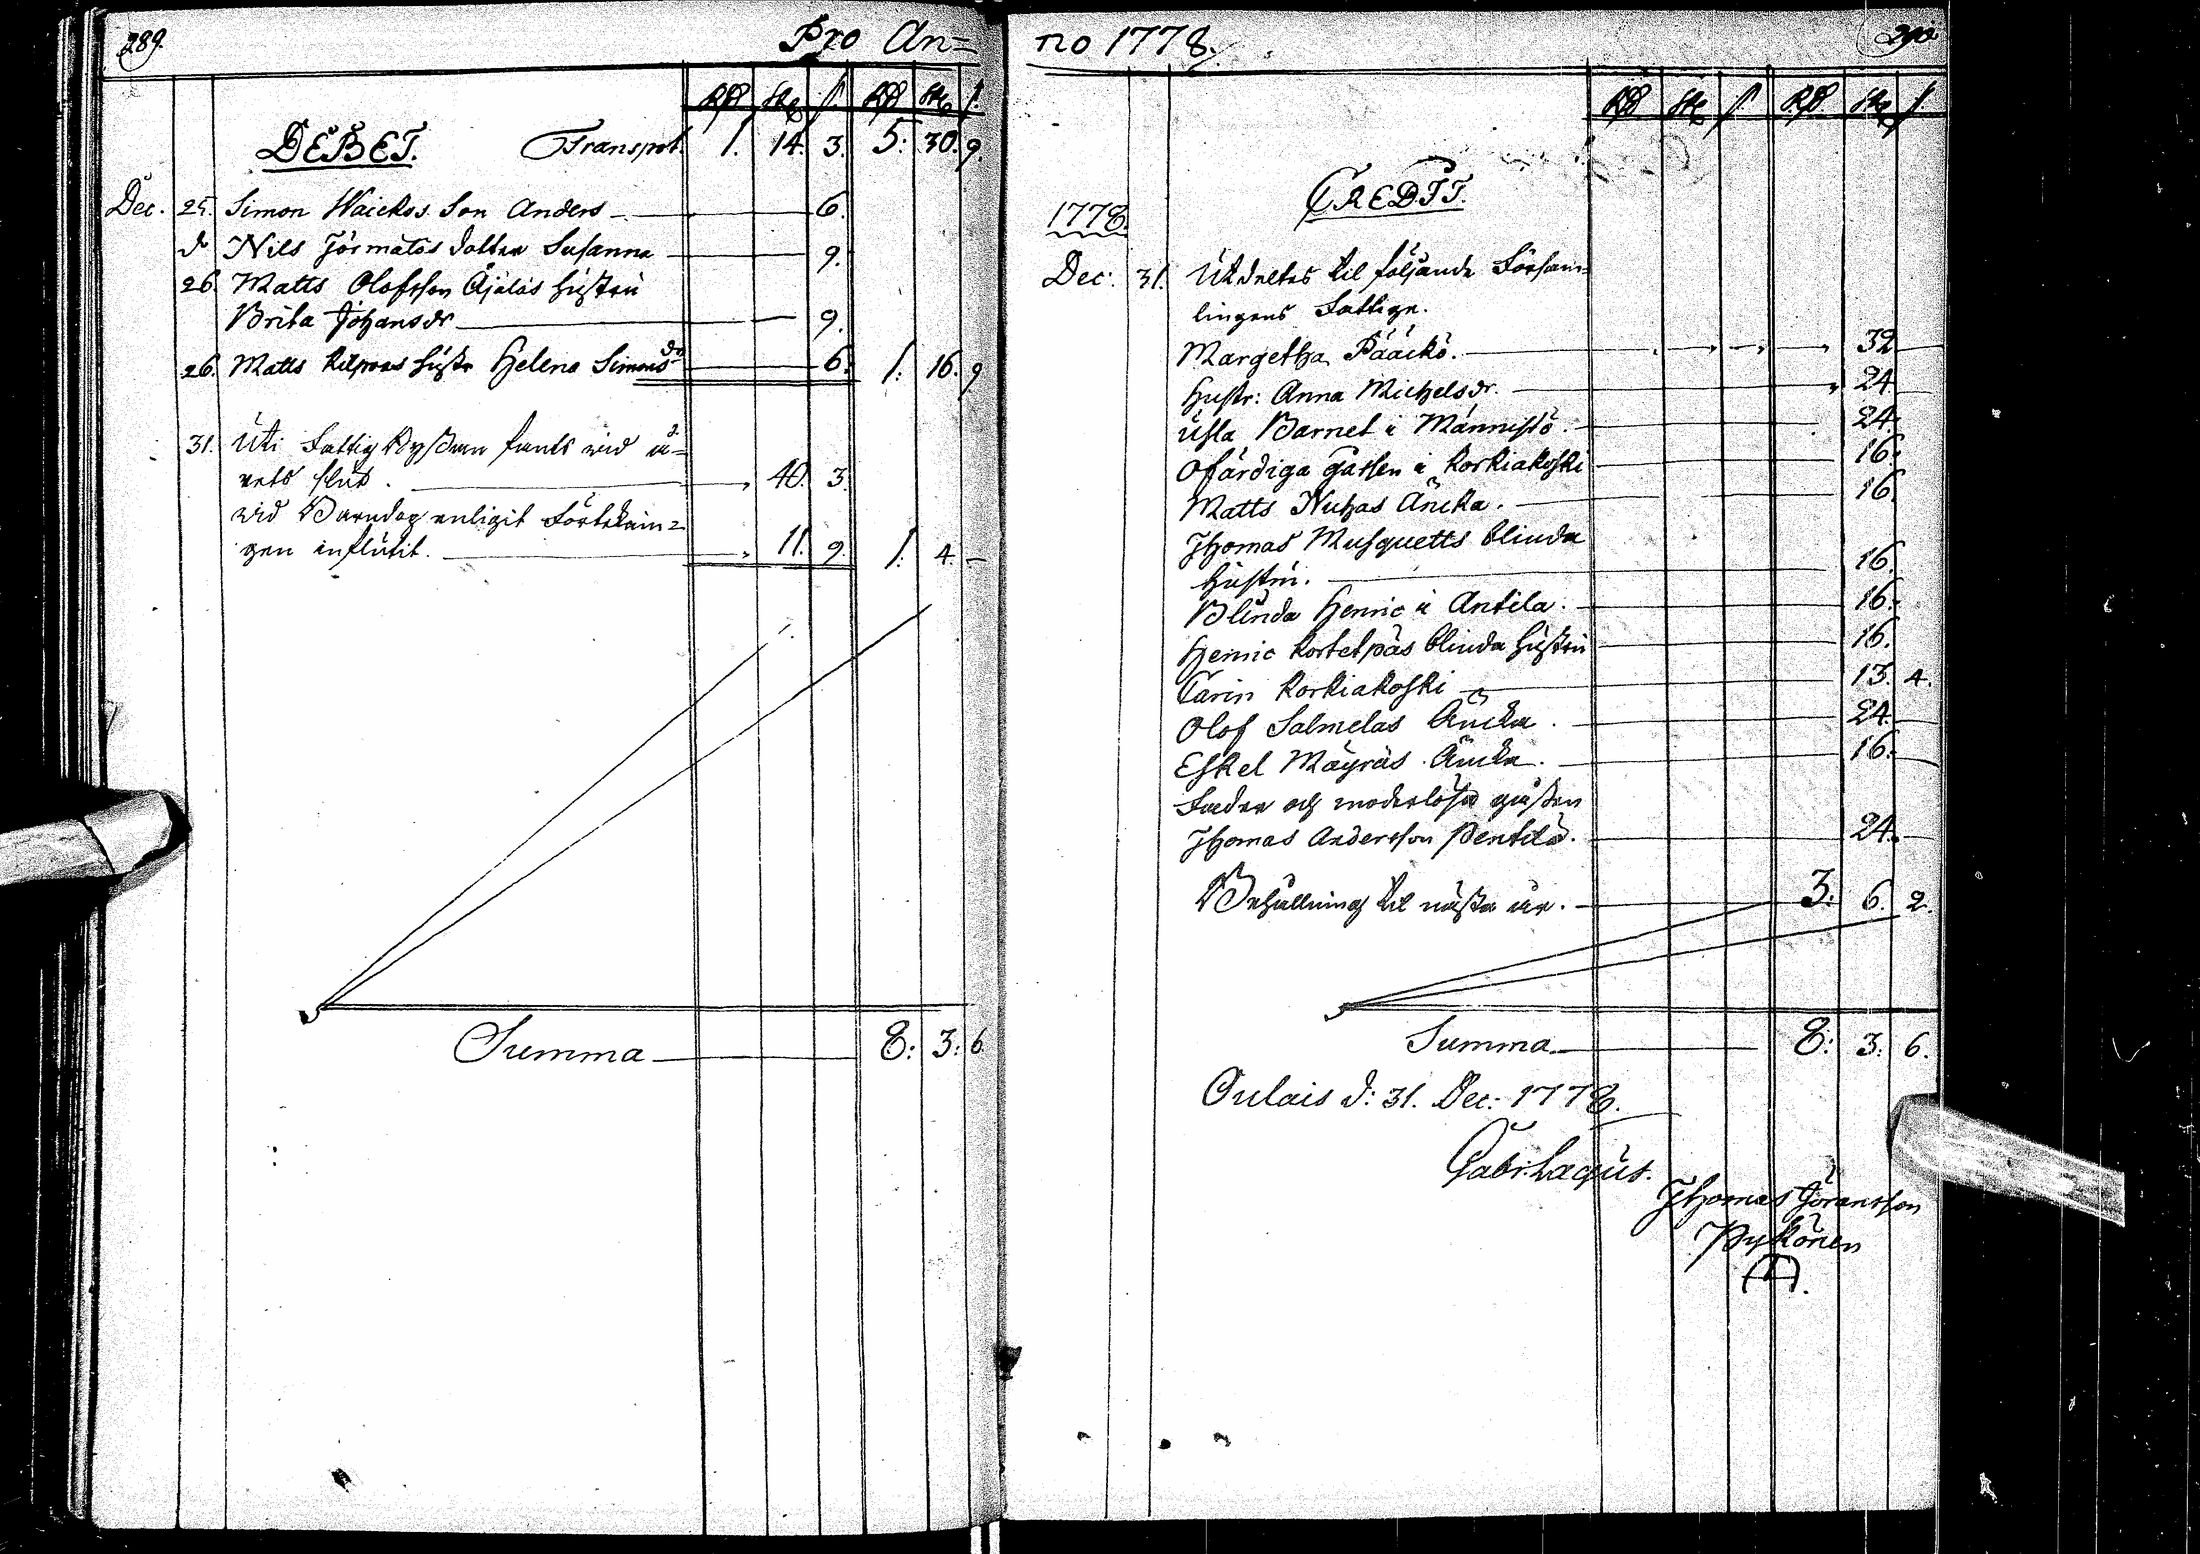 289.
Pro An=
RD Sk f. RD Sk f.
DEBET. Transport. 1. 14. 3. 5: 30. 9.
Dec. 25. Simon Waickos Son Anders 6.
do Nils Jormalas dotter Susanna 9.
26. Matts Olofsson Äjälös hustru
Brita Johansdr 9.
26. Matts Kilpuas hustr Helena Simonsdr 6. 1. 16. 9
31. Uti Fattig Byssan fants wid å=
rets slut. 40. 3.
wid Barndop enligit Förteknin=
gen influtit. 11. 9. 1. 4. –
Summa 8: 3: 6.
no 1778.
290.
RD Sk f RD. Sk f.
CREDIT.
1778.
Dec: 31. Utdeltes til följande Försam=
lingens Fattige.
Margetha Pääckö. 32
Hustr: Anna Michelsdr. 24
Usla Barnet i Männistö. 24.
Ofärdiga Gossen i Korkiakoski 16.
Matts Nuhas Äncka. 16.
Thomas Musquetts blinda
hustru. 16.
Blinda Henric i Antila. 16.
Henric Kortetpäs blinda hustru 16.
Carin Korkiakoski 13. 4.
Olof Salmelas Äncka. 24.
Eskel Mäyräs Äncka. 16.
Fader och moderlösa gossen
Thomas Andersson Pentilä. 24.
Behållning til nästa år. 3: 6. 2.
Summa 8: 3: 6.
Oulais d: 31. Dec: 1778.
Gabr: Lagus.
Thomas Göransson
Pykönen